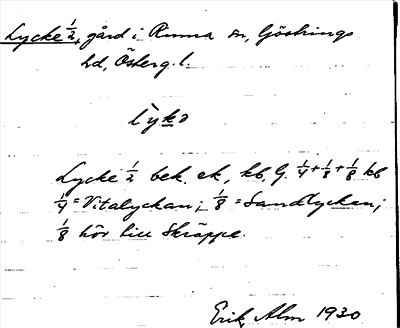 Lycke ½, gård i Runna sn, Göstrings
hd, Österg. l.
lỳkə
Lycke ½ bek. ek., kb. G. ¼+⅛+⅛ kb
¼ = Vitalyckan; ⅛ = Sandlyckan;
⅛ hör till Skräppe.
Erik Alm 1930